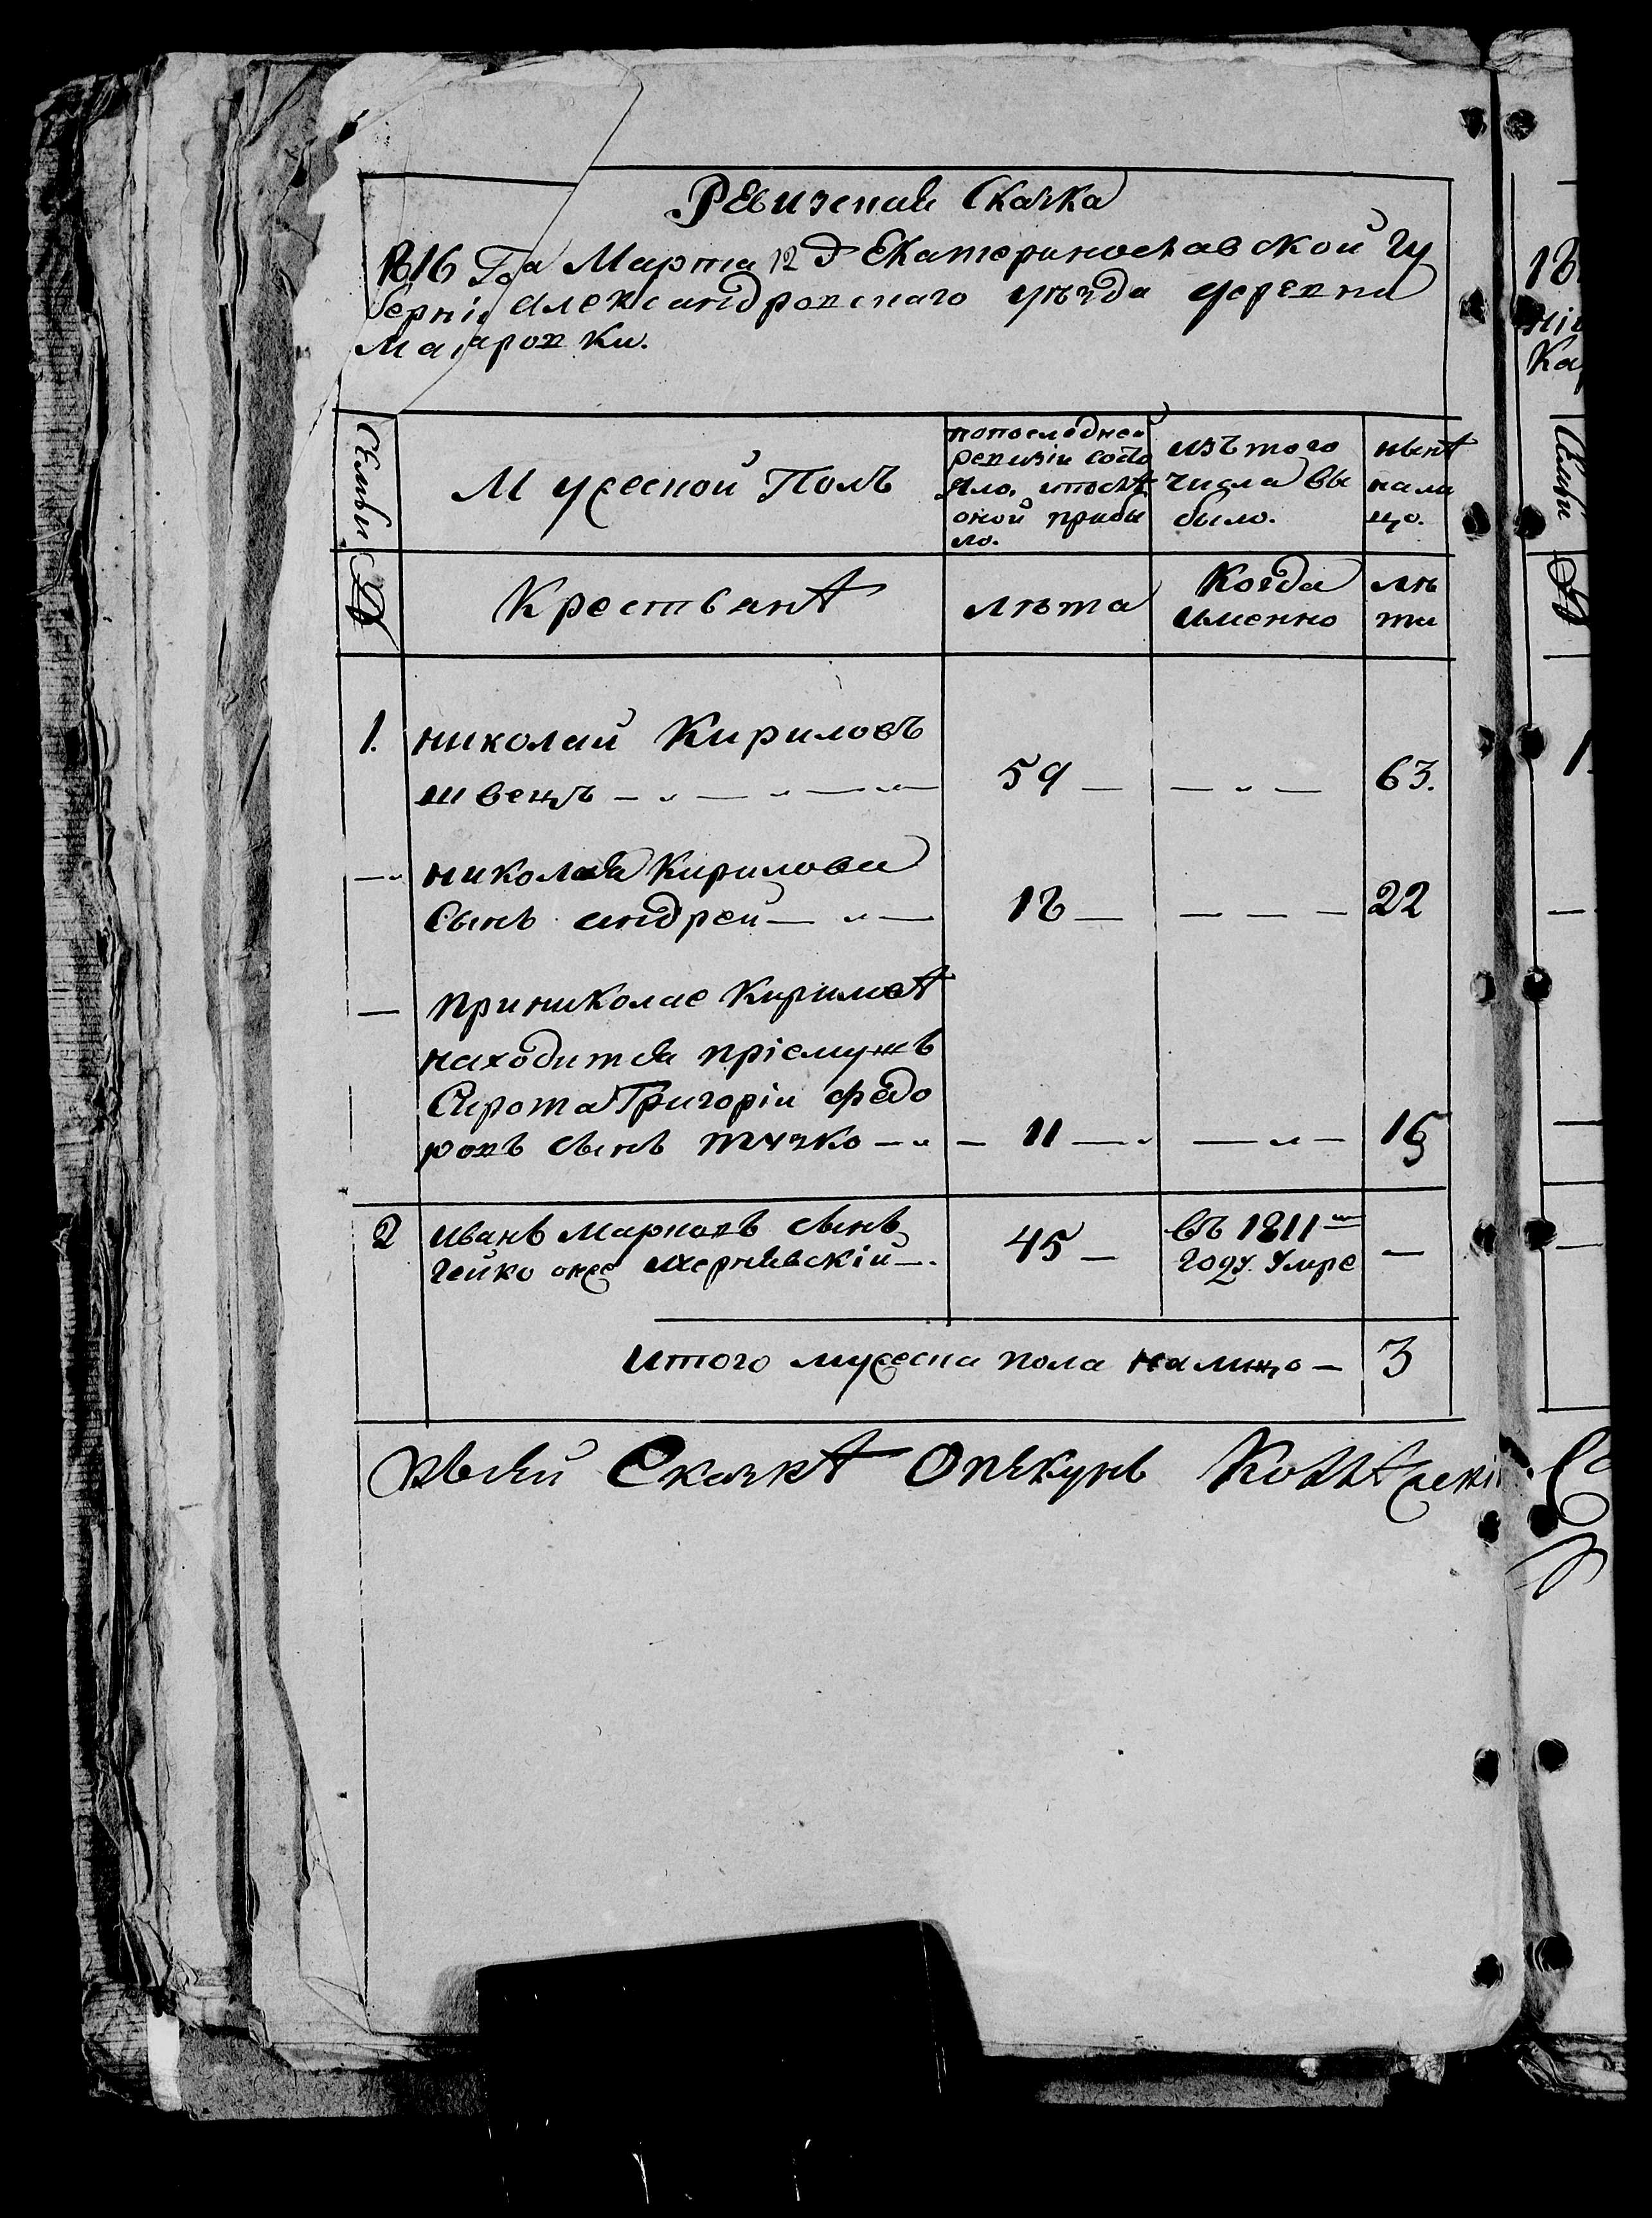 Ревизская Сказка
1816 Года Марта 12 Д Екатеринославской Гу
берніи Александровскаго уѣзда деревни
Ма аровки.
Семьи
Мужеской Полъ
попоследней
ревизіи состо
яло. ипослѣ
оной прибы
ло.
изъ того
числа вы
было.
нынѣ
нали
цо.
№
Крестьянѣ
лѣта
Когда
именно
лѣ
ти
1. николай Кириловъ
швецъ — „ — „ — 59 — — „ — 63.
— „ николая Кирилова
Сынъ андрей — „ — 18 — — — — 22
— приниколае Кириловѣ
находится пріемушъ
Сирота Григоріи федо
ровъ сынъ тучко — „ — 11 — „ — „ — 15
2 иванъ Марковъ сынъ
гейко онже чернявскій — . 45 — въ 1811м
году. Умре —
Итого мужеска пола налицо — 3
Скаскѣ Опѣкунъ
18
ні
Ка
Семьи
№
1.